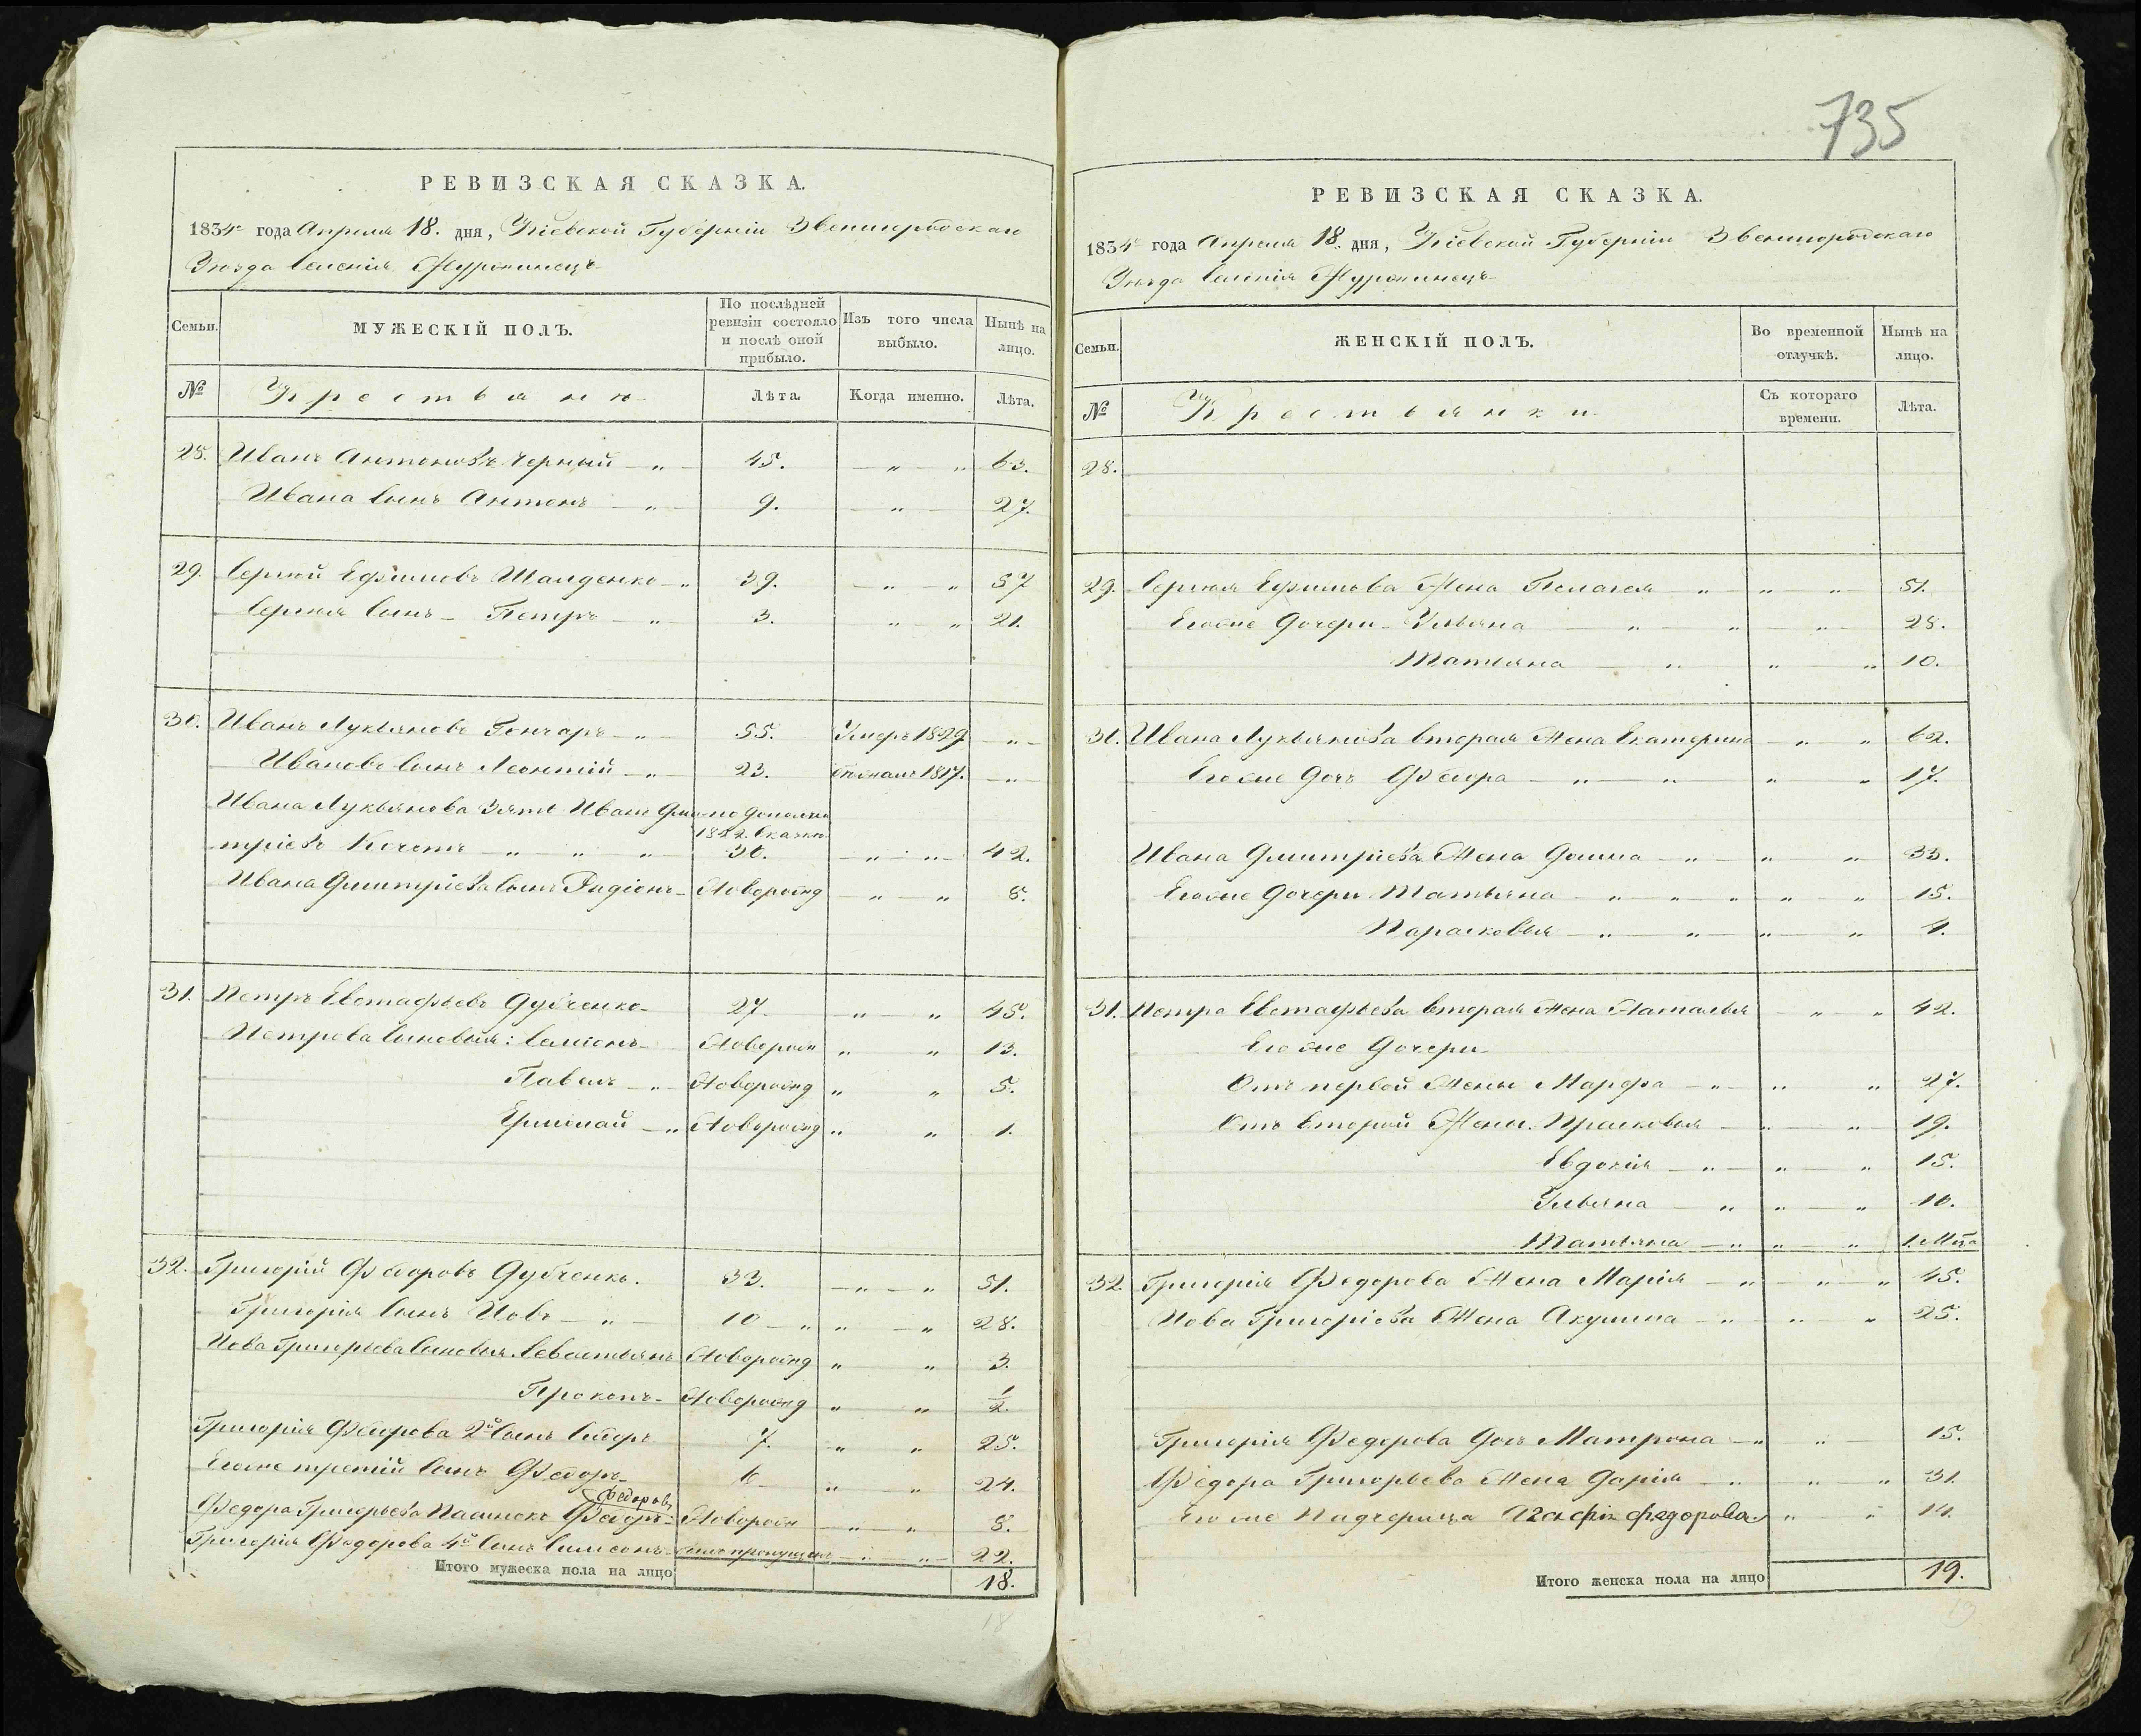 735
РЕВИЗСКАЯ СКАЗКА.
1834 года Апреля 18. дня, Кіевской Губерніи Звенигородскаго
Уѣзда Селенія Журжинецъ
Семьи. МУЖЕСКІЙ ПОЛЪ. По послѣдней ревизіи состояло и послѣ оной прибыло. Изъ того числа выбыло. Нынѣ на лицо.
№ Крестьяне Лѣта. Когда именно. Лѣта.
28. Иванъ Антоновъ Черный — „ — 45. — „ — „ 63.
Ивана Сынъ Антонъ — „ — 9. — „ — 27.
29. Сергѣй Ефимовъ Шаиденко — „ 39. — „ — „ 57
Сергѣя Сынъ — Петръ — „ — 3. — „ — „ 21.
30. Иванъ Лукьяновъ Гончаръ — „ — 55. Умеръ 1829 — „ —
Ивановъ Сынъ Леонтій — „ — 23. 1817. — „ —
Ивана Лукьянова Зять Иванъ Дми-
тріевъ Кочетъ — „ — „ — „ 1822. Сказкѣ 30. — „ — „ — 42.
Ивана Дмитріева Сынъ Радіонъ — Новорожд — „ — „ 8.
31. Петръ Евстафьевъ Дубченко — 27. — „ — „ 45.
Петрова Сыновья: Самсонъ — Новорож „ „ 13.
Павелъ — „ — Новорожд „ „ 5.
Ермолай — „ Новорожд „ „ 1.
32. Григорій Федоровъ Дубченко. 33. — „ — „ 51.
Григорія Сынъ Іовъ — „ — 10 — „ „ — „ 28.
Иова Григорьева Сыновья. Севастьянъ Новорожд „ „ 3.
Прокопъ — Новорожд „ „ 1/2.
Григорія Федорова 2й Сынъ Сидоръ 7. „ „ 25.
Егоже третій Сынъ Федоръ — 6 — „ „ 24.
Федоровъ
Федора Григорьева Пасынокъ Федоръ — Новорож — „ — „ 8.
Григорія Федорова 4й Сынъ Симеонъ — пропущенъ — „ — „ — 22.
Итого мужеска пола на лицо 18.
18
РЕВИЗСКАЯ СКАЗКА.
1834 года Апреля 18. дня, Кіевской Губерніи Звенигородскаго
Уѣзда Селенія Журжинецъ
Семьи. ЖЕНСКІЙ ПОЛЪ. Во временной отлучкѣ. Нынѣ на лицо.
№ Крестьянки Съ котораго времени. Лѣта.
28.
29. Сергѣя Ефимова Жена Пелагея — „ — „ — „ — 51.
Егоже Дочери — Ульяна — „ — „ — „ — 28.
Татьяна — „ — „ — „ 10.
30. Ивана Лукьянова вторая Жена Екатерина — „ — „ 62.
Егоже Дочь Федора — „ — „ „ — „ 17.
Ивана Дмитріева Жена Домна — „ — „ — „ 33.
Егоже Дочери Татьяна — „ — „ — „ „ — „ 15.
Парасковья — „ — „ — „ — „ 4.
31. Петра Евстафьева вторая Жена Наталья — „ — „ 42.
Егоже Дочери
Отъ первой Жены Марфа — „ — „ „ 27.
Отъ второй Жены. Прасковья — „ — „ 19.
Евдокія — „ — „ — „ 15.
Ульяна — „ „ — „ 10.
Татьяна — „ „ — „ 1. Мца
32. Григорія Федорова Жена Марія — „ — „ — „ 45.
Иова Григоріева Жена Акулина — „ — „ — „ 25.
Григорія Федорова Дочь Матрона — „ „ — 15.
Федора Григорьева Жена Дарія — „ — „ „ 31.
Егоже Падчерица Агафія Федорова „ „ 14.
Итого женска пола на лицо 19.
19